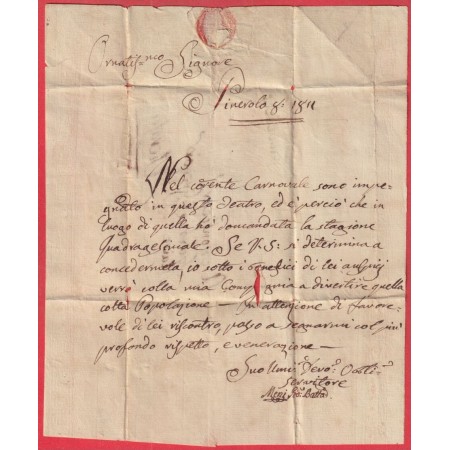 Ornatis.mo Signore
Pinerolo 8. 1811
Nel corente Carnovale sono impe-
gnato in questo Teatro, ed è perciò che in
luogo di quella hò domandata la stagione
Quadragesimale. Se V.S: si determina a
concedermela, io sotto i benefici di lei auspicj
verrò colla mia Compagnia a divertire quella
colta Popolazione — In attenzione di favore-
vole di lei riscontro, passo a segnarmi col più
profondo rispetto, e venerazione —
Suo Umi.o Devo.o Obli.o
Servitore
Batta